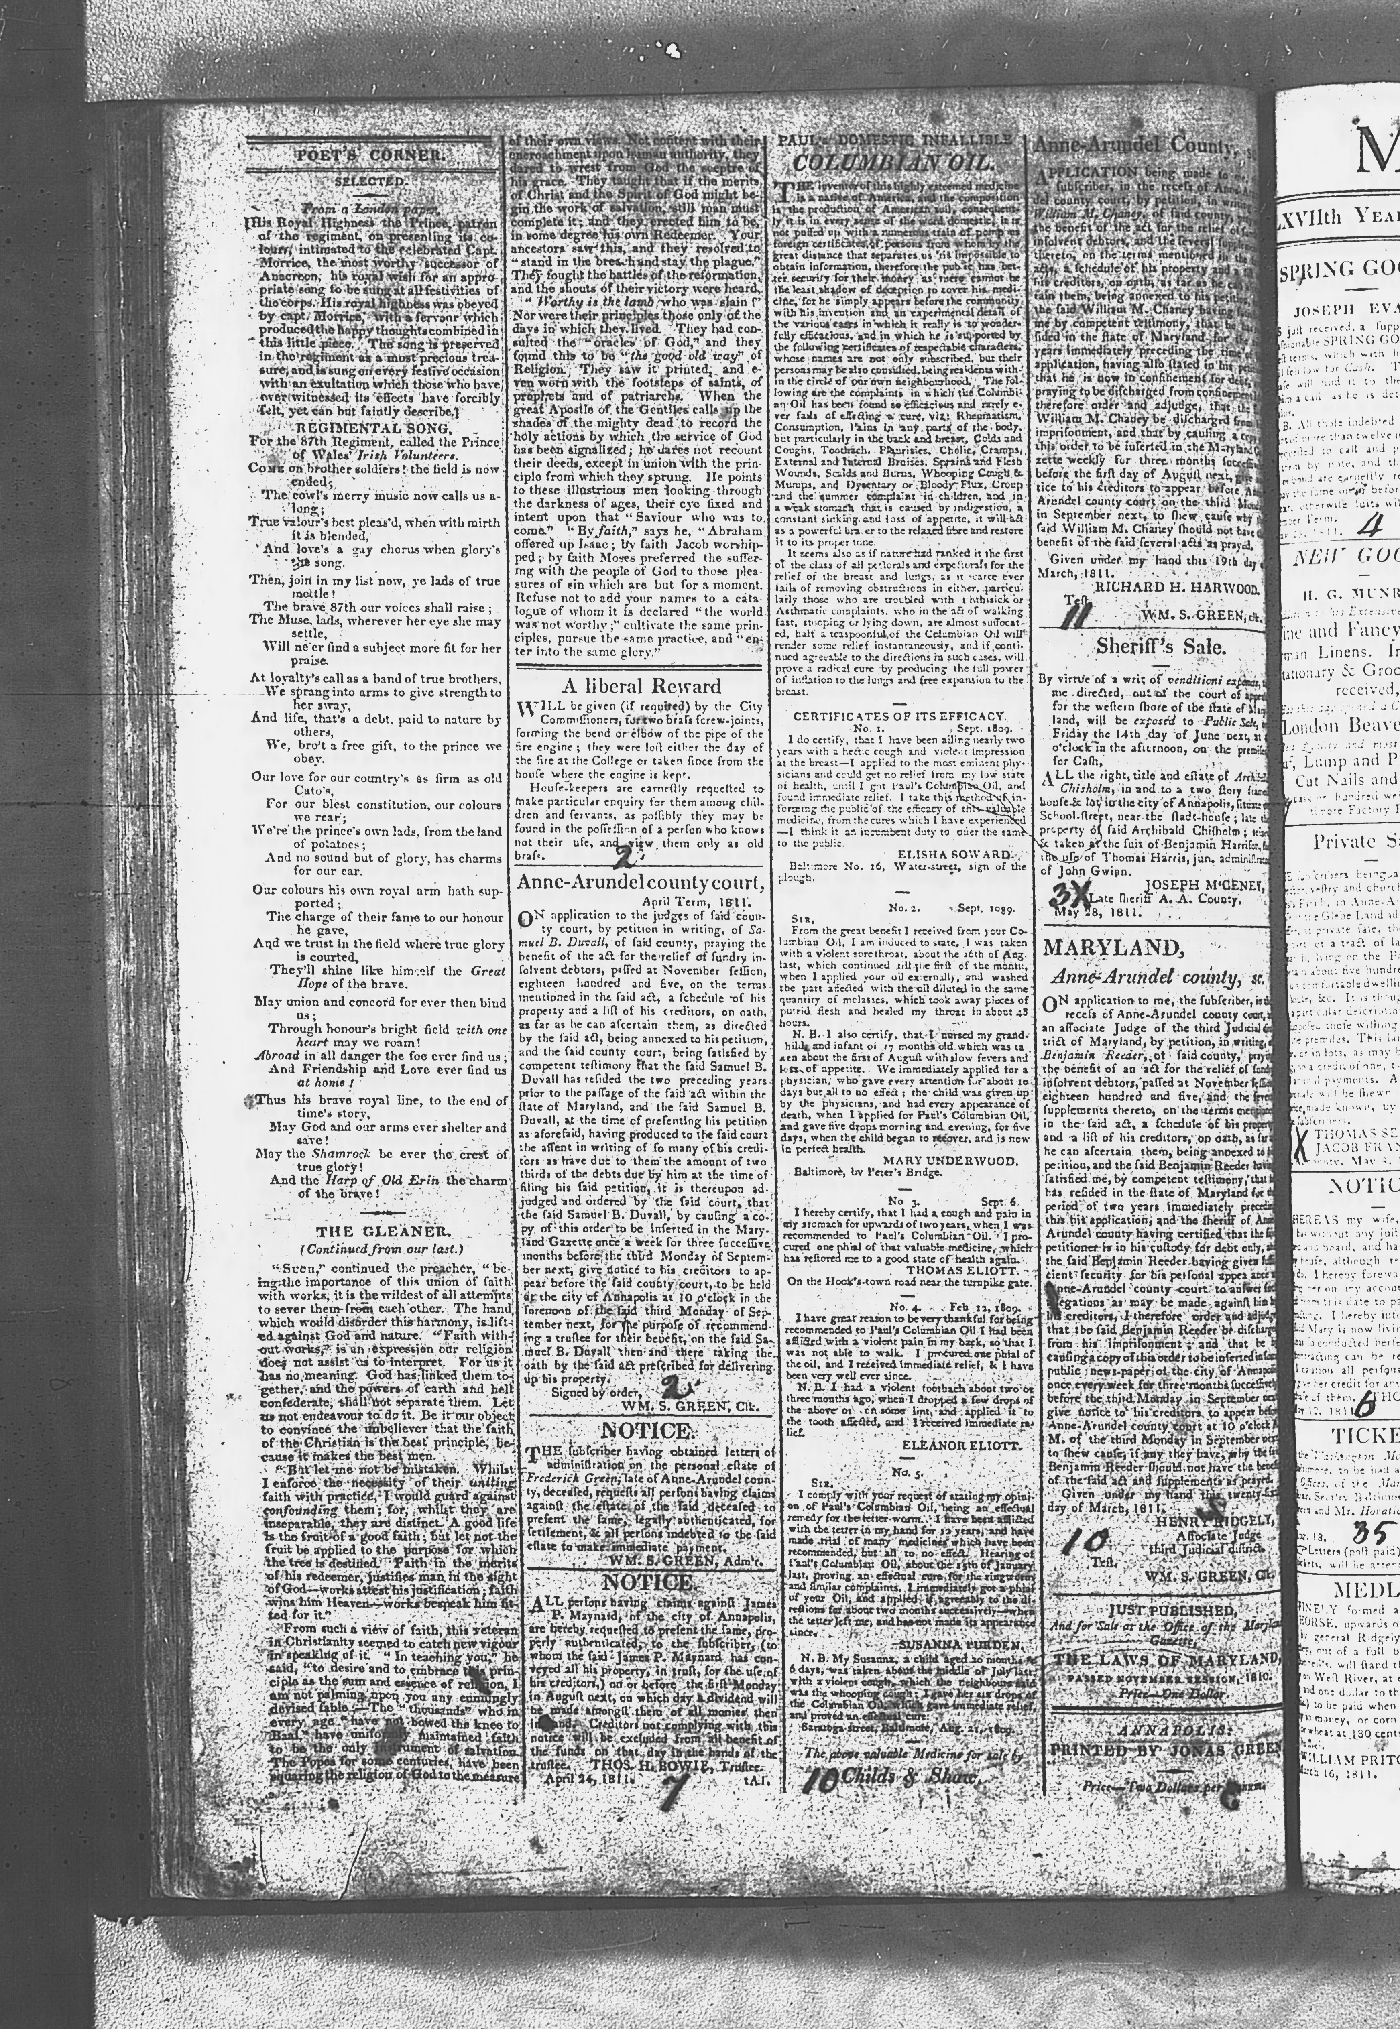 POET'S CORNER.
SELECTED.
From a London paper.
[His Royal Highness the Prince, patron
of the regiment, on presenting its co-
lours, intimated to the celebrated Capt.
Morrice, the most worthy successor of
Anacreon, his royal wish for an appro-
priate song to be sung at all festivities of
the corps. His royal highness was obeyed
by capt. Morrice, with a fervour which
produced the happy thoughts combined in
this little piece. The song is preserved
in the regiment as a most precious trea-
sure, and is sung on every festive occasion
with an exultation which those who have
ever witnessed its effects have forcibly
felt, yet can but faintly describe.]
REGIMENTAL SONG,
For the 87th Regiment, called the Prince
of Wales' Irish Volunteers.
COME on brother soldiers! the field is now
ended;
The cowl's merry music now calls us a-
long;
True valour's best pleas'd, when with mirth
it is blended,
And love's a gay chorus when glory's
the song.
Then, join in my list now, ye lads of true
mettle!
The brave 87th our voices shall raise;
The Muse, lads, wherever her eye she may
settle,
Will ne'er find a subject more fit for her
praise.
At loyalty's call as a band of true brothers,
We sprang into arms to give strength to
her sway,
And life, that's a debt, paid to nature by
others,
We, bro't a free gift, to the prince we
obey.
Our love for our country's as firm as old
Cato's,
For our blest constitution, our colours
we rear;
We're the prince's own lads, from the land
of potatoes;
And no sound but of glory, has charms
for our ear.
Our colours his own royal arm hath sup-
ported;
The charge of their fame to our honour
he gave,
And we trust in the field where true glory
is courted,
They'll shine like himself the Great
Hope of the brave.
May union and concord for ever then bind
us;
Through honour's bright field with one
heart may we roam!
Abroad in all danger the foe ever find us;
And Friendship and Love ever find us
at home!
Thus his brave royal line, to the end of
time's story,
May God and our arms ever shelter and
save!
May the Shamrock be ever the crest of
true glory!
And the Harp of Old Erin the charm
of the brave!
THE GLEANER.
(Continued from our last.)
"Such," continued the preacher, "be-
ing the importance of this union of faith
with works, it is the wildest of all attempts
to sever them from each other. The hand
which would disorder this harmony, is lift-
ed against God and nature. "Faith with-
out works," is an expression our religion
does not assist us to interpret. For us it
has no meaning. God has linked them to-
gether, and the powers of earth and hell
confederate, shall not separate them. Let
us not endeavour to do it. Be it our object
to convince the unbeliever that the faith
of the Christian is the best principle, be-
cause it makes the best men.
"But let me not be mistaken. Whilst
I enforce the necessity of their uniting
faith with practice, I would guard against
confounding them; for, whilst they are
inseparable, they are distinct. A good life
is the fruit of a good faith; but let not the
fruit be applied to the purpose for which
the tree is destined. Faith in the merits
of his redeemer, justifies man in the sight
of God—works attest his justification; faith
wins him Heaven—works bespeak him fit-
ted for it."
From such a view of faith, this veteran
in Christianity seemed to catch new vigour
in speaking of it. "In teaching you," he
said, "to desire and to embrace this prin-
ciple as the sum and essence of religion, I
am not palming upon you any cunningly
devised fable.—The "thousands" who in
every age "have not bowed the knee to
Baal" have uniformly maintained faith
to be the only instrument of salvation.
The Popes for some centuries, have been
squaring the religion of God to the measure
of their own views. Not content with their
encroachment upon human authority, they
dared to wrest from God the sceptre of
his grace. They taught that if the merits
of Christ and the Spirit of God might be-
gin the work of salvation, still man must
complete it; and they erected him to be,
in some degree his own Redeemer. Your
ancestors saw this, and they resolved to
"stand in the breach and stay the plague."
They fought the battles of the reformation,
and the shouts of their victory were heard,
"Worthy is the lamb who was slain!"
Nor were their principles those only of the
days in which they lived. They had con-
sulted the "oracles of God," and they
found this to be "the good old way" of
Religion. They saw it printed, and e-
ven worn with the footsteps of saints, of
prophets and of patriarchs. When the
great Apostle of the Gentiles calls up the
shades of the mighty dead to record the
holy actions by which the service of God
has been signalized; he dares not recount
their deeds, except in union with the prin-
ciple from which they sprung. He points
to these illustrious men looking through
the darkness of ages, their eye fixed and
intent upon that "Saviour who was to
come." "By faith," says he, "Abraham
offered up Isaac; by faith Jacob worship-
ped; by faith Moses preferred the suffer-
ing with the people of God to those plea-
sures of sin which are but for a moment.
Refuse not to add your names to a cata-
logue of whom it is declared "the world
was not worthy;" cultivate the same prin-
ciples, pursue the same practice, and "en-
ter into the same glory."
A liberal Reward
WILL be given (if required) by the City
Commissioners, for two brass screw-joints,
forming the bend or elbow of the pipe of the
fire engine; they were lost either the day of
the fire at the College or taken since from the
house where the engine is kept.
House-keepers are earnestly requested to
make particular enquiry for them among chil-
dren and servants, as possibly they may be
found in the possession of a person who knows
not their use, and view them only as old
brass.
2
Anne-Arundel county court,
April Term, 1811.
ON application to the judges of said coun-
ty court, by petition in writing, of Sa-
muel B. Duvall, of said county, praying the
benefit of the act for the relief of sundry in-
solvent debtors, passed at November session,
eighteen hundred and five, on the terms
mentioned in the said act, a schedule of his
property and a list of his creditors, on oath,
as far as he can ascertain them, as directed
by the said act, being annexed to his petition,
and the said county court, being satisfied by
competent testimony that the said Samuel B.
Duvall has resided the two preceding years
prior to the passage of the said act within the
state of Maryland, and the said Samuel B.
Duvall, at the time of presenting his petition
as aforesaid, having produced to the said court
the assent in writing of so many of his credi-
tors as have due to them the amount of two
thirds of the debts due by him at the time of
filing his said petition, it is thereupon ad-
judged and ordered by the said court, that
the said Samuel B. Duvall, by causing a co-
py of this order to be inserted in the Mary-
land Gazette once a week for three successive
months before the third Monday of Septem-
ber next, give notice to his creditors to ap-
pear before the said county court, to be held
at the city of Annapolis at 10 o'clock in the
forenoon of the said third Monday of Sep-
tember next, for the purpose of recommend-
ing a trustee for their benefit, on the said Sa-
muel B. Duvall then and there taking the
oath by the said act prescribed for delivering
up his property.
Signed by order,
2
WM. S. GREEN, Clk.
NOTICE.
THE subscriber having obtained letters of
administration on the personal estate of
Frederick Green, late of Anne-Arundel coun-
ty, deceased, requests all persons having claims
against the estate of the said deceased to
present the same, legally authenticated, for
settlement, & all persons indebted to the said
estate to make immediate payment.
WM. S. GREEN, Adm'r.
NOTICE.
ALL persons having claims against James
P. Maynard, of the city of Annapolis,
are hereby requested to present the same, pro-
perly authenticated, to the subscriber, (to
whom the said James P. Maynard has con-
veyed all his property, in trust, for the use of
his creditors,) on or before the first Monday
in August next, on which day a dividend will
be made amongst them of all monies then
in hand. Creditors not complying with this
notice will be excluded from all benefit of
the funds on that day in the hands of the
trustee. THOS. H. BOWIE, Trustee.
April 24, 1811.
7
PAUL's DOMESTIC INFALLIBLE
COLUMBIAN OIL.
THE inventor of this highly esteemed medicine
is a native of America, and the composition
is the production of American soil, consequent-
ly it is in every sense of the word domestic, it is
not puffed up with a numerous train of pomp as
foreign certificates of persons from whom by the
great distance that separates us 'tis impossible to
obtain information, therefore the public has bet-
ter security for their money as there cannot be
the least shadow of deception to cover his medi-
cine, for he simply appears before the community,
with his invention and an experimental detail of
the various cases in which it really is so wonder-
fully efficacious, and in which he is supported by
the following certificates of respectable characters,
whose names are not only subscribed, but their
persons may be also consulted, being residents with-
in the circle of our own neighbourhood. The fol-
lowing are the complaints in which the Columbi-
an Oil has been found so efficacious and rarely e-
ver fails of effecting a cure, viz: Rheumatism,
Consumption, Pains in any parts of the body,
but particularly in the back and breast, Colds and
Coughs, Toothach, Pleurisies, Cholic, Cramps,
External and Internal Bruises, Sprains and Flesh
Wounds, Scalds and Burns, Whooping Cough &
Mumps, and Dysentary or Bloody Flux, Croup
and the summer complaint in children, and in
a weak stomach that is caused by indigestion, a
constant sinking and loss of appetite, it will act
as a powerful bracer to the relaxed fibre and restore
it to its proper tone.
It seems also as if nature had ranked it the first
of the class of all pectorals and expectorals for the
relief of the breast and lungs, as it scarce ever
fails of removing obstructions in either, particu-
larly those who are troubled with Phthisick or
Asthmatic complaints, who in the act of walking
fast, stooping or lying down, are almost suffocat-
ed, half a teaspoonful of the Columbian Oil will
render some relief instantaneously, and if conti-
nued agreeable to the directions in such cases, will
prove a radical cure by producing the full power
of inflation to the lungs and free expansion to the
breast.
CERTIFICATES OF ITS EFFICACY.
No. 1. Sept. 1809.
I do certify, that I have been ailing nearly two
years with a hectic cough and violent impression
at the breast—I applied to the most eminent phy-
sicians and could get no relief from my low state
of health, until I got Paul's Columbian Oil, and
found immediate relief. I take this method of in-
forming the public of the efficacy of this valuable
medicine, from the cures which I have experienced
—I think it an incumbent duty to offer the same
to the public.
ELISHA SOWARD.
Baltimore No. 16, Water-street, sign of the
plough.
No. 2. Sept. 1089.
SIR,
From the great benefit I received from your Co-
lumbian Oil, I am induced to state, I was taken
with a violent sorethroat, about the 16th of Aug.
last, which continued till the first of the month,
when I applied your oil externally, and washed
the part affected with the oil diluted in the same
quantity of molasses, which took away pieces of
putrid flesh and healed my throat in about 48
hours.
N. B. I also certify, that I nursed my grand-
child, and infant of 17 months old which was ta-
ken about the first of August with slow fevers and
loss of appetite. We immediately applied for a
physician, who gave every attention for about 10
days but all to no effect; the child was given up
by the physicians, and had every appearance of
death, when I applied for Paul's Columbian Oil,
and gave five drops morning and evening, for five
days, when the child began to recover, and is now
in perfect health.
MARY UNDERWOOD.
Baltimore, by Peter's Bridge.
No 3. Sept. 6.
I hereby certify, that I had a cough and pain in
my stomach for upwards of two years, when I was
recommended to Paul's Columbian Oil. I pro-
cured one phial of that valuable medicine, which
has restored me to a good state of health again.
THOMAS ELIOTT.
On the Hook's-town road near the turnpike gate.
No. 4. Feb 12, 1809.
I have great reason to be very thankful for being
recommended to Paul's Columbian Oil I had been
afflicted with a violent pain in my back, so that I
was not able to walk. I procured one phial of
the oil, and I received immediate relief, & I have
been very well ever since.
N. B. I had a violent toothach about two or
three months ago, when I dropped a few drops of
the above oil on some lint, and applied it to
the tooth affected, and I received immediate re-
lief.
ELEANOR ELIOTT.
No. 5.
SIR,
I comply with your request of stating my opini-
on of Paul's Columbian Oil, being an effectual
remedy for the tetter-worm. I have been afflicted
with the tetter in my hand for 12 years, and have
made trial of many medicines which have been
recommended, but all to no effect. Hearing of
Paul's Columbian Oil, about the 15th of January
last, proving an effectual cure for the ringworm
and similar complaints, I immediately got a phial
of your Oil, and applied it agreeably to the di-
rections for about two months successively—when
the tetter left me, and has not made its appearance
since.
SUSANNA PURDEN.
N. B. My Susanna, a child aged 20 months &
6 days, was taken about the middle of July last,
with a violent cough, which the neighbours said
was the whooping cough; I gave her six drops of
the Columbian Oil, which gave immediate relief,
and proved an effectual cure.
Saratoga-street, Baltimore, Aug. 21, 1809.
The above valuable Medicine for sale by
10 Childs & Shaw.
Anne-Arundel County, sc.
APPLICATION being made to
subscriber, in the recess of Anne-
del county court, by petition, in writing
William M. Chaney, of said county,
the benefit of the act for the relief of
insolvent debtors, and the several supplements
thereto, on the terms mentioned in the
acts, a schedule of his property and a
his creditors, on oath, as far as he can
tain them, being annexed to his petition
the said William M. Chaney having
me by competent testimony, that he has
sided in the state of Maryland for two
years immediately preceding the time of
application, having also stated in his petition
that he is now in confinement for debt,
praying to be discharged from confinement
therefore order and adjudge, that the
William M. Chaney be discharged from
imprisonment, and that by causing a copy
this order to be inserted in the Maryland
zette weekly for three months successively
before the first day of August next, give
tice to his creditors to appear before
Arundel county court on the third Monday
in September next, to shew cause why
said William M. Chaney should not have
benefit of the said several acts as prayed.
Given under my hand this 19th day
March, 1811.
RICHARD H. HARWOOD.
Test.
11
WM. S. GREEN, clk.
Sheriff's Sale.
By virtue of a writ of venditioni exponas,
me directed, out of the court of appeals
for the western shore of the state of Mary-
land, will be exposed to Public Sale,
Friday the 14th day of June next, at
o'clock in the afternoon, on the premises
for Cash,
ALL the right, title and estate of
Chisholm, in and to a two story
house & lot in the city of Annapolis,
School-street, near the stadt-house; late
property of said Archibald Chisholm;
& taken at the suit of Benjamin Harrison,
the use of Thomas Harris, jun. administrator
of John Gwinn.
JOSEPH M'CENEY,
3X
Late sheriff A. A. County.
May 28, 1811.
MARYLAND,
Anne-Arundel county, sc.
ON application to me, the subscriber, in the
recess of Anne-Arundel county court,
an associate Judge of the third Judicial
trict of Maryland, by petition, in writing,
Benjamin Reeder, of said county,
the benefit of an act for the relief of
insolvent debtors, passed at November session
eighteen hundred and five, and the several
supplements thereto, on the terms mentioned
in the said act, a schedule of his property
and a list of his creditors, on oath, as far
he can ascertain them, being annexed to
petition, and the said Benjamin Reeder having
satisfied me, by competent testimony, that
has resided in the state of Maryland for
period of two years immediately preceding
this his application; and the sheriff of
Arundel county having certified that the
petitioner is in his custody for debt only,
the said Benjamin Reeder having given
cient security for his personal appearance
Anne-Arundel county court to answer
egations as may be made against him
his creditors, I therefore order and adjudge
that the said Benjamin Reeder be discharged
from his imprisonment; and that by
causing a copy of this order to be inserted in
public news-paper at the city of Annapolis
once every week for three months successively
before the third Monday in September
give notice to his creditors, to appear before
Anne-Arundel county court at 10 o'clock
M. of the third Monday in September
to shew cause, if any they have, why the said
Benjamin Reeder should not have the benefit
of the said act and supplements as prayed.
Given under my hand this twenty-first
day of March, 1811.
HENRY RIDGELY,
10
Associate Judge
third Judicial district.
Test.
WM. S. GREEN, Clk.
JUST PUBLISHED,
And for Sale at the Office of the Maryland
Gazette,
THE LAWS OF MARYLAND,
PASSED NOVEMBER SESSION, 1810.
Price—One Dollar
ANNAPOLIS:
PRINTED BY JONAS GREEN
Price—Two Dollars per Annum.
M
LXVIIth YEAR
SPRING GOO
JOSEPH EVA
4
NEW GOO
H. G. MUNR
and Fancy
Linens.
received,
London Beave
Lamp and P
Cut Nails and
Private S
X
THOMAS SE
JACOB FRAN
NOTIC
HEREAS my wife,
6
TICKE
35
MEDL
WILLIAM PRITC
16, 1811.